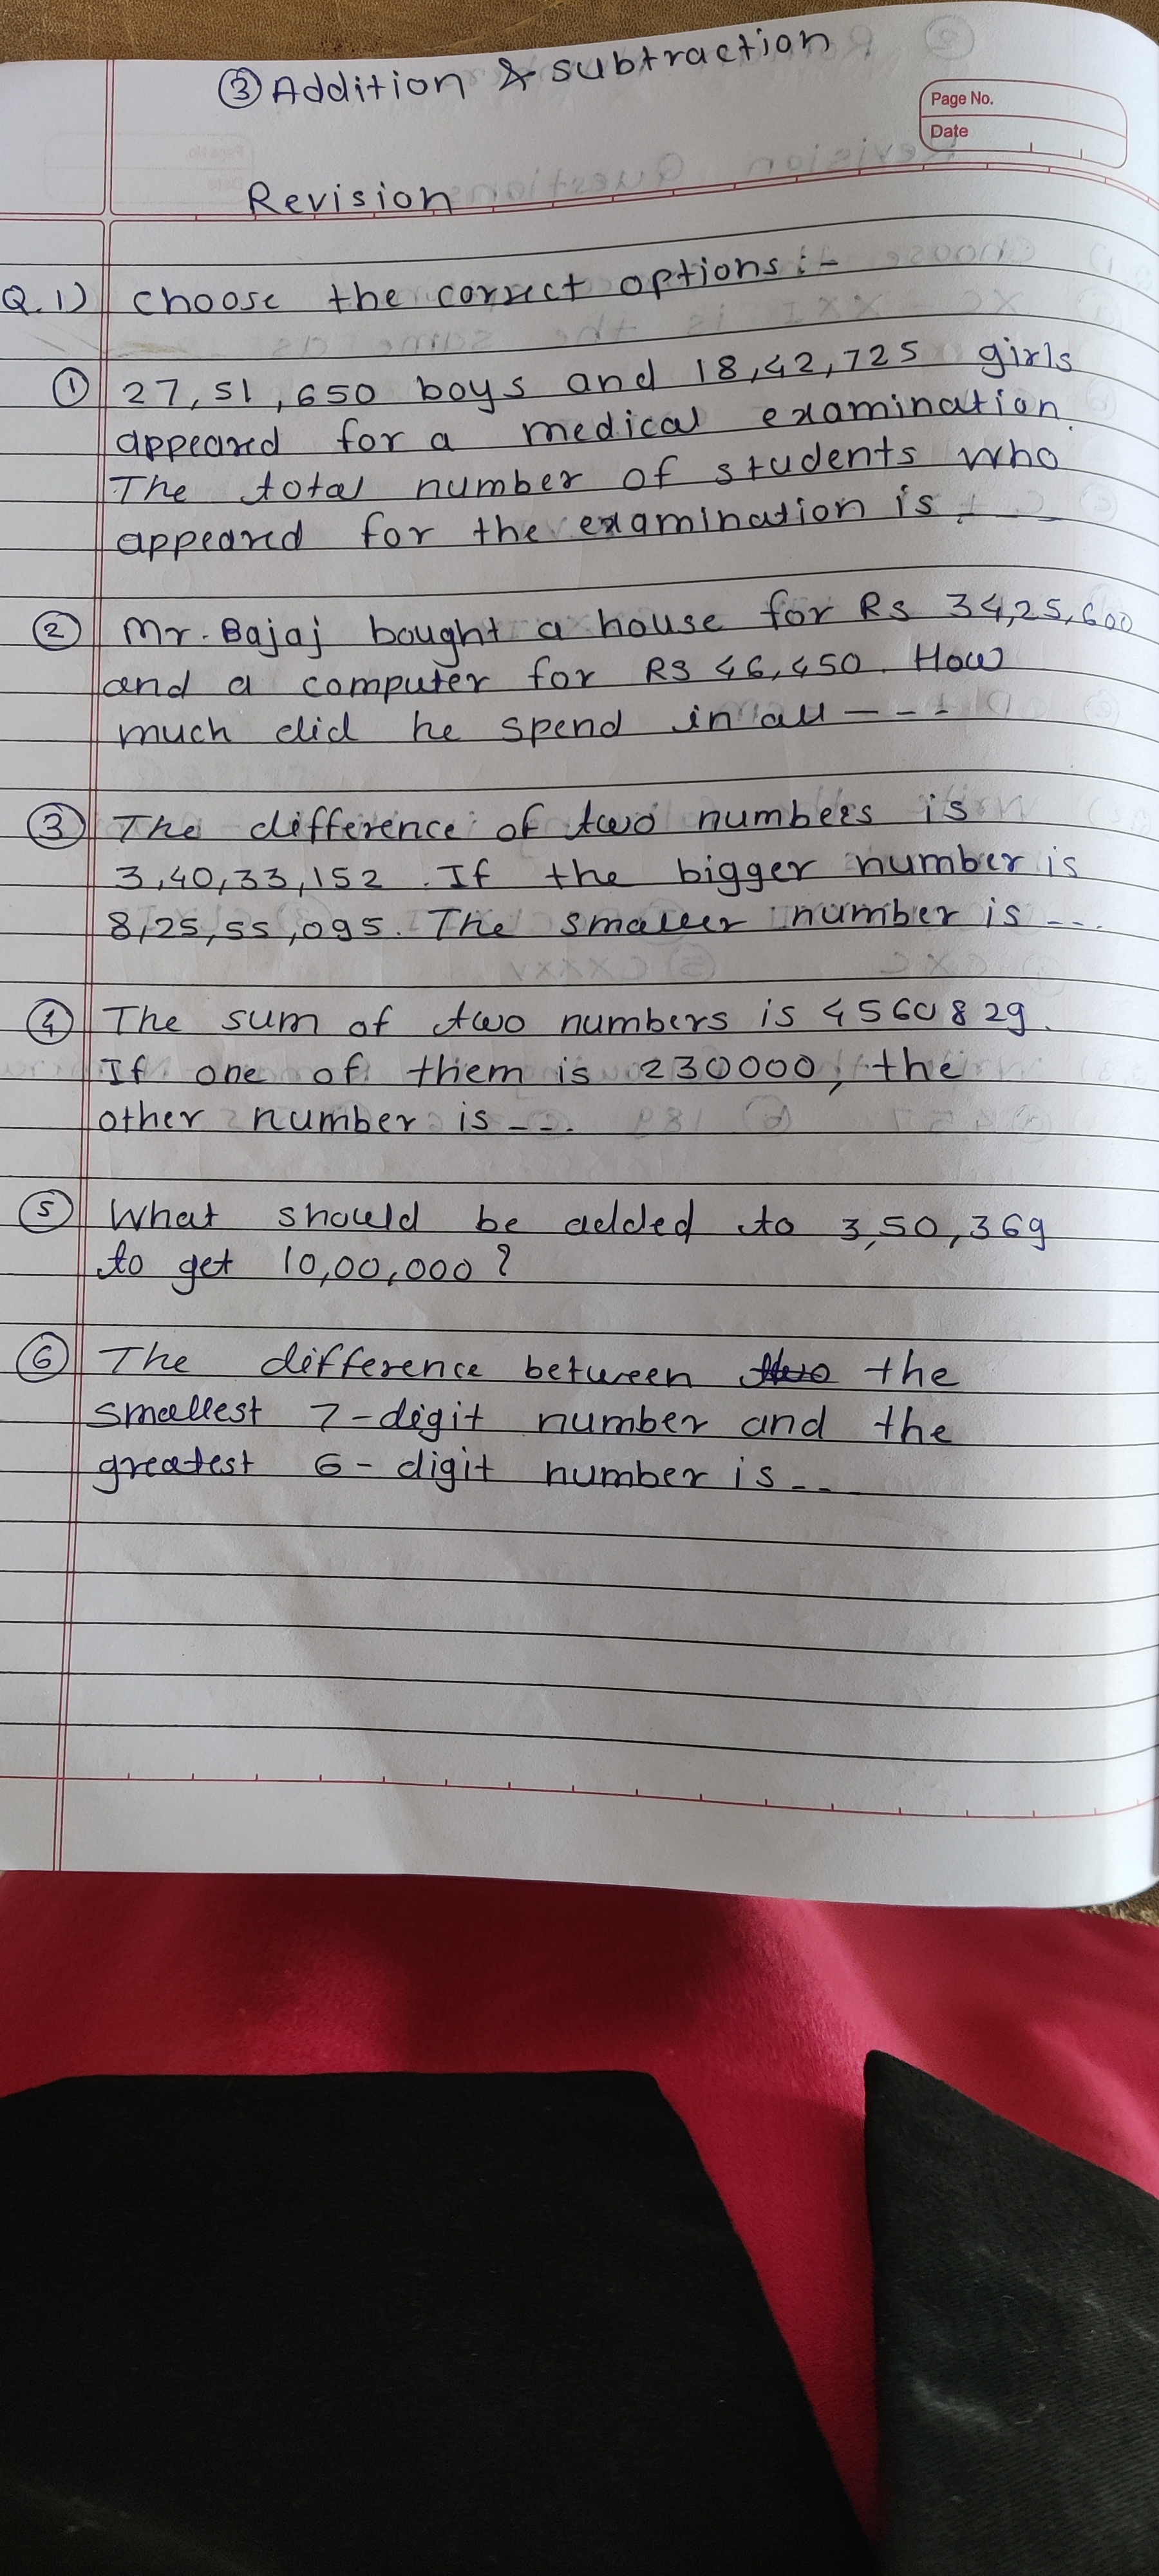 ③ Addition & subtraction
Page No.
Date
Revision
Q.1) choose the correct options :-
① 27,51,650 boys and 18,42,725 girls
appeared for a medical examination.
The total number of students who
appeared for the examination is ---
② Mr. Bajaj bought a house for Rs 34,25,600
and a computer for RS 46,450. How
much did he spend in all ----
③ The difference of two numbers is
3,40,33,152. If the bigger number is
8,25,55,095. The smaller number is ---.
④ The sum of two numbers is 4560829.
If one of them is 230000, the
other number is ---.
⑤ What should be added to 3,50,369
to get 10,00,000?
⑥ The difference between the
smallest 7-digit number and the
greatest 6-digit number is --